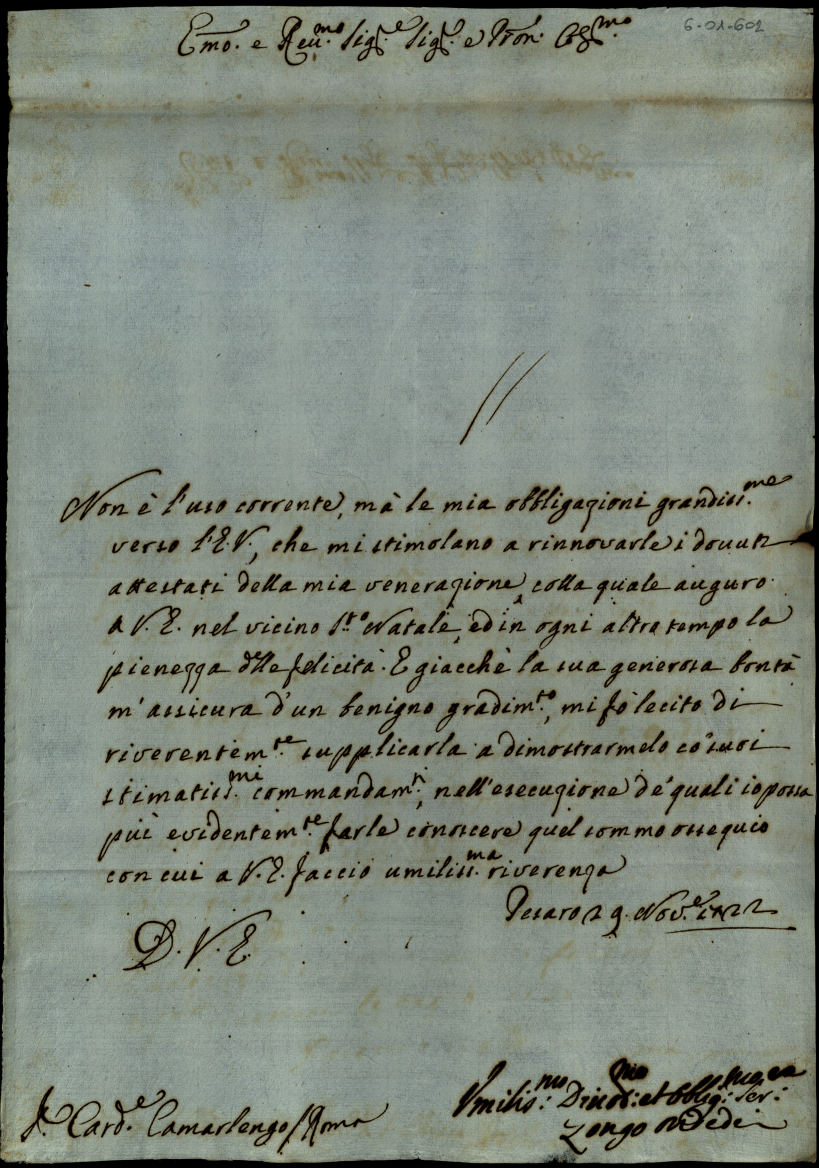 6-01-602
Emo. e Reu.mo Sig.e Sig.e e Pron. Col.mo
Non è l'uso corrente, mà le mia obbligazioni grandiss.me
verso l'E.V., che mi stimolano a rinnovarle i douuti
attestati della mia venerazione, colla quale auguro
à V. E. nel vicino S.to Natale, ed in ogni altro tempo la
pienezza d'lle felicità. E giacchè la sua generosa bontà
m'assicura d'un benigno gradim.to, mi fò lecito di
riverentem.te supplicarla a dimostrarmelo co' suoi
stimatiss.mi commandam.ti, nell'esecuzione de' quali io possa
più evidentem.te farle conoscere quel sommo ossequio
con cui a V. E. faccio umiliss.ma riverenza
Pesaro 29. Nov.e 1722
D. V. E.
Umilis.mo Diuot.mo et Oblig.mo Ser.
Zongo Ondedei
S.r Card.e Camarlengo / Roma